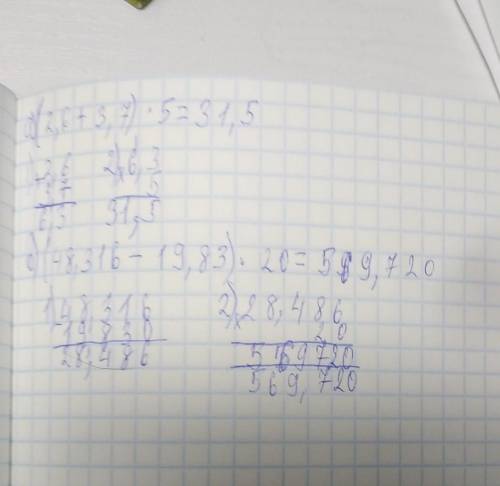 (2,6+3,7)·5=31,5
1) 2,6 2) 6,3
3,7 5
6,3 31,5
(48,316-19,83)·20=569,720
1) 48,316 2) 28,48,6
19,830 20
28,486 569720
569,720